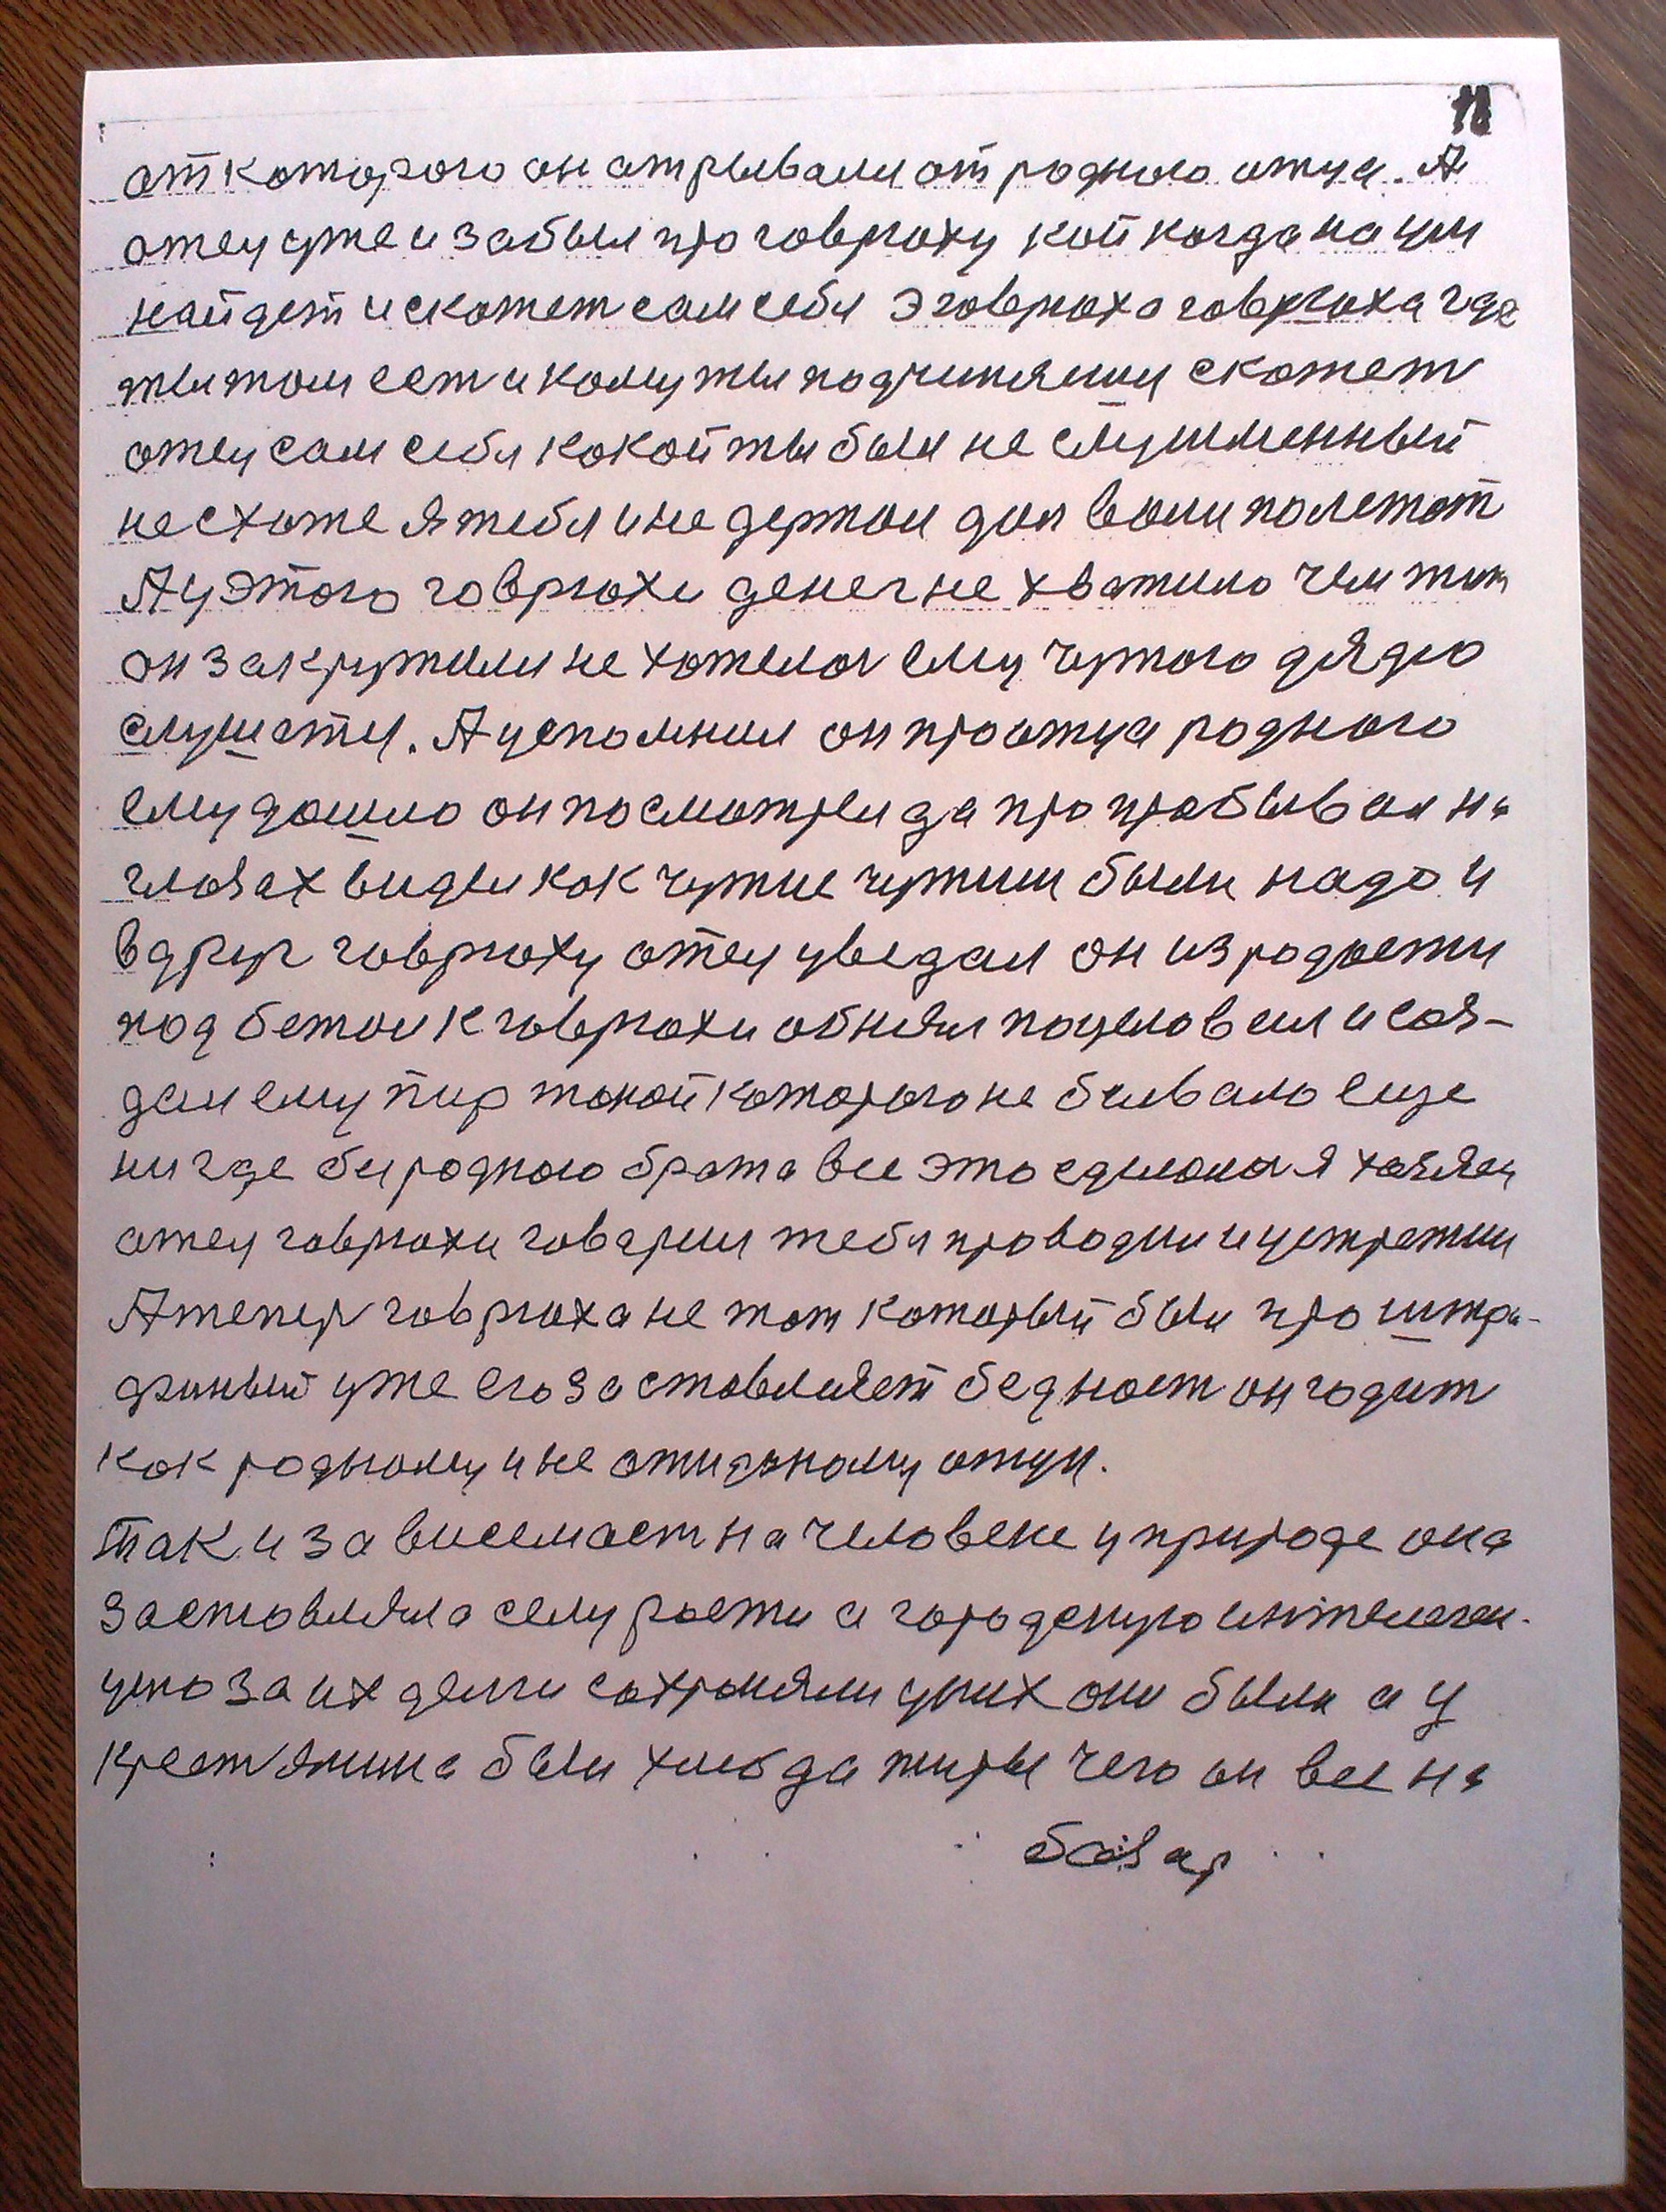 18
от которого он атрывали от родного отца. А
отец уже и забыл про говрюху кой когда на ум
найдет и скожет сам себя э говрюха говрюха где
ты том сет и кому ты подчиняиш скожет
отец сам себя кокой ты был не слушменный
не схоже я тебя и не держол дол воли полетот
А у этого говрюхи денег не хватило чем жит
он закружили не хотелоч ему чужого дядю
слушоти. А успомнил он про отца родного
ему дошло он посмотрел да про пребывол на
глозах видел как чужие чужим были надо и
вдруг говрюху отец уведал он из родости
подбежол к говрюхи обнял поцеловол и соз-
дал ему пир токой которого не бывало еще
ни где бы родного брата все это сделоло я хозяен
отец говрюхи говарил тебя проводил и устретил
А тепер говрюха не тот который был про штра-
фный уже его зостовляет бедност он годит
кок родному и не отидному отцу.
Так и за висемост на человеке у природе она
зостовляла селу рости а городскую интелеген-
цию за их денги сохроняли у них они были а у
крестянина был хлеб да жиры чего он вес на
бозар